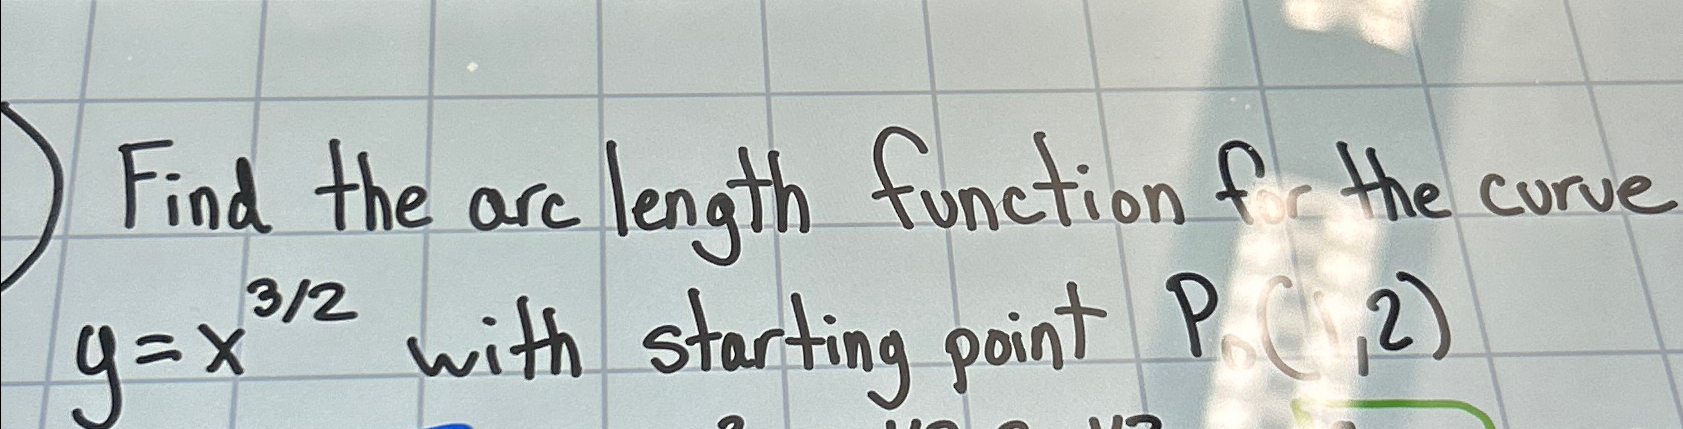 ) Find the arc length function for the curve
y=x^3/2 with starting point P₀(1,2)